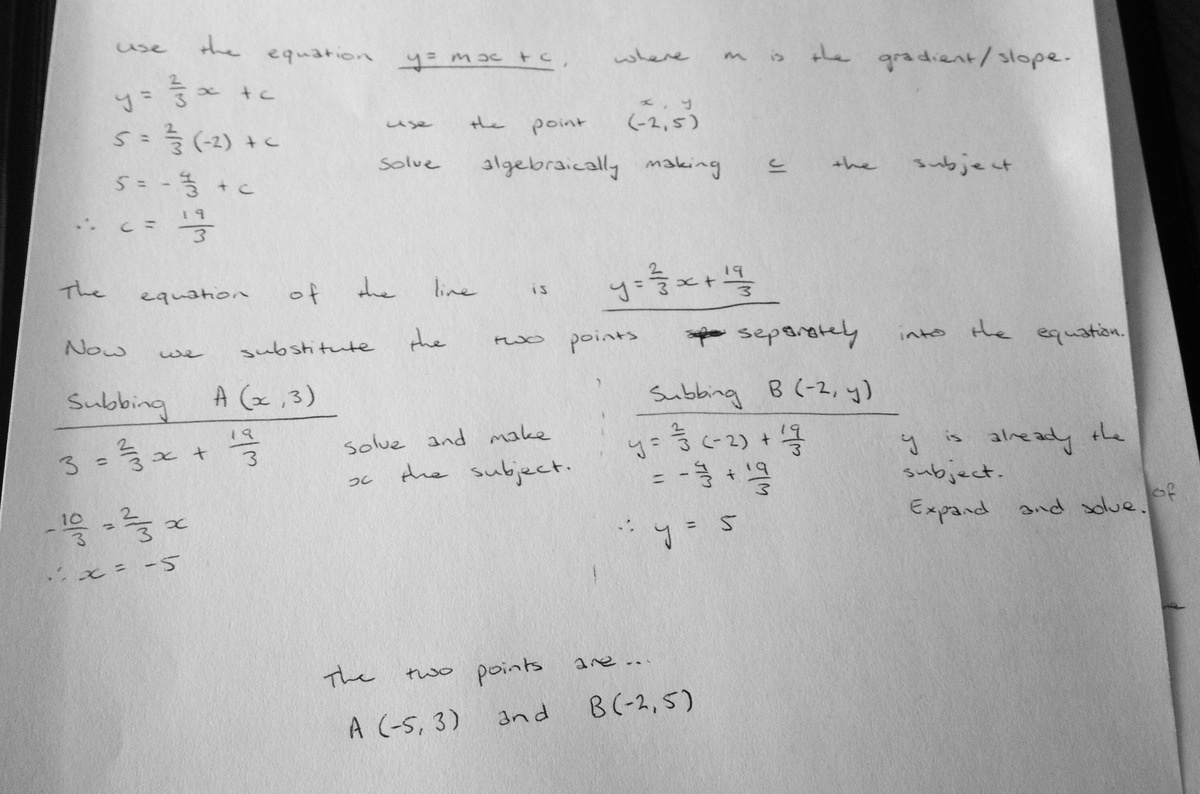 use the equation y = mx + c, where m is the gradient/slope.
y = 2/3 x + c
x, y
5 = 2/3 (-2) + c use the point (-2,5)
5 = - 4/3 + c Solve algebraically making c the subject
∴ c = 19/3
The equation of the line is y = 2/3 x + 19/3
Now we substitute the two points separately into the equation.
Subbing A (x, 3)
3 = 2/3 x + 19/3 Solve and make
x the subject.
- 10/3 = 2/3 x
∴ x = -5
Subbing B (-2, y)
y = 2/3 (-2) + 19/3 y is already the
= - 4/3 + 19/3 subject.
∴ y = 5 Expand and solve.
of
The two points are ...
A (-5, 3) and B (-2, 5)